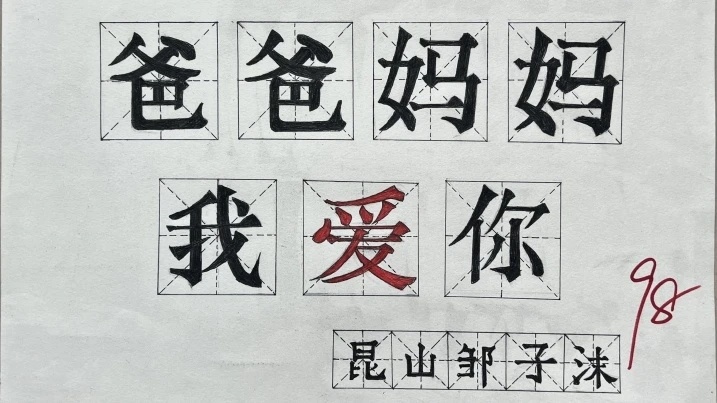 爸爸妈妈
我爱你
昆山邹子沫
98